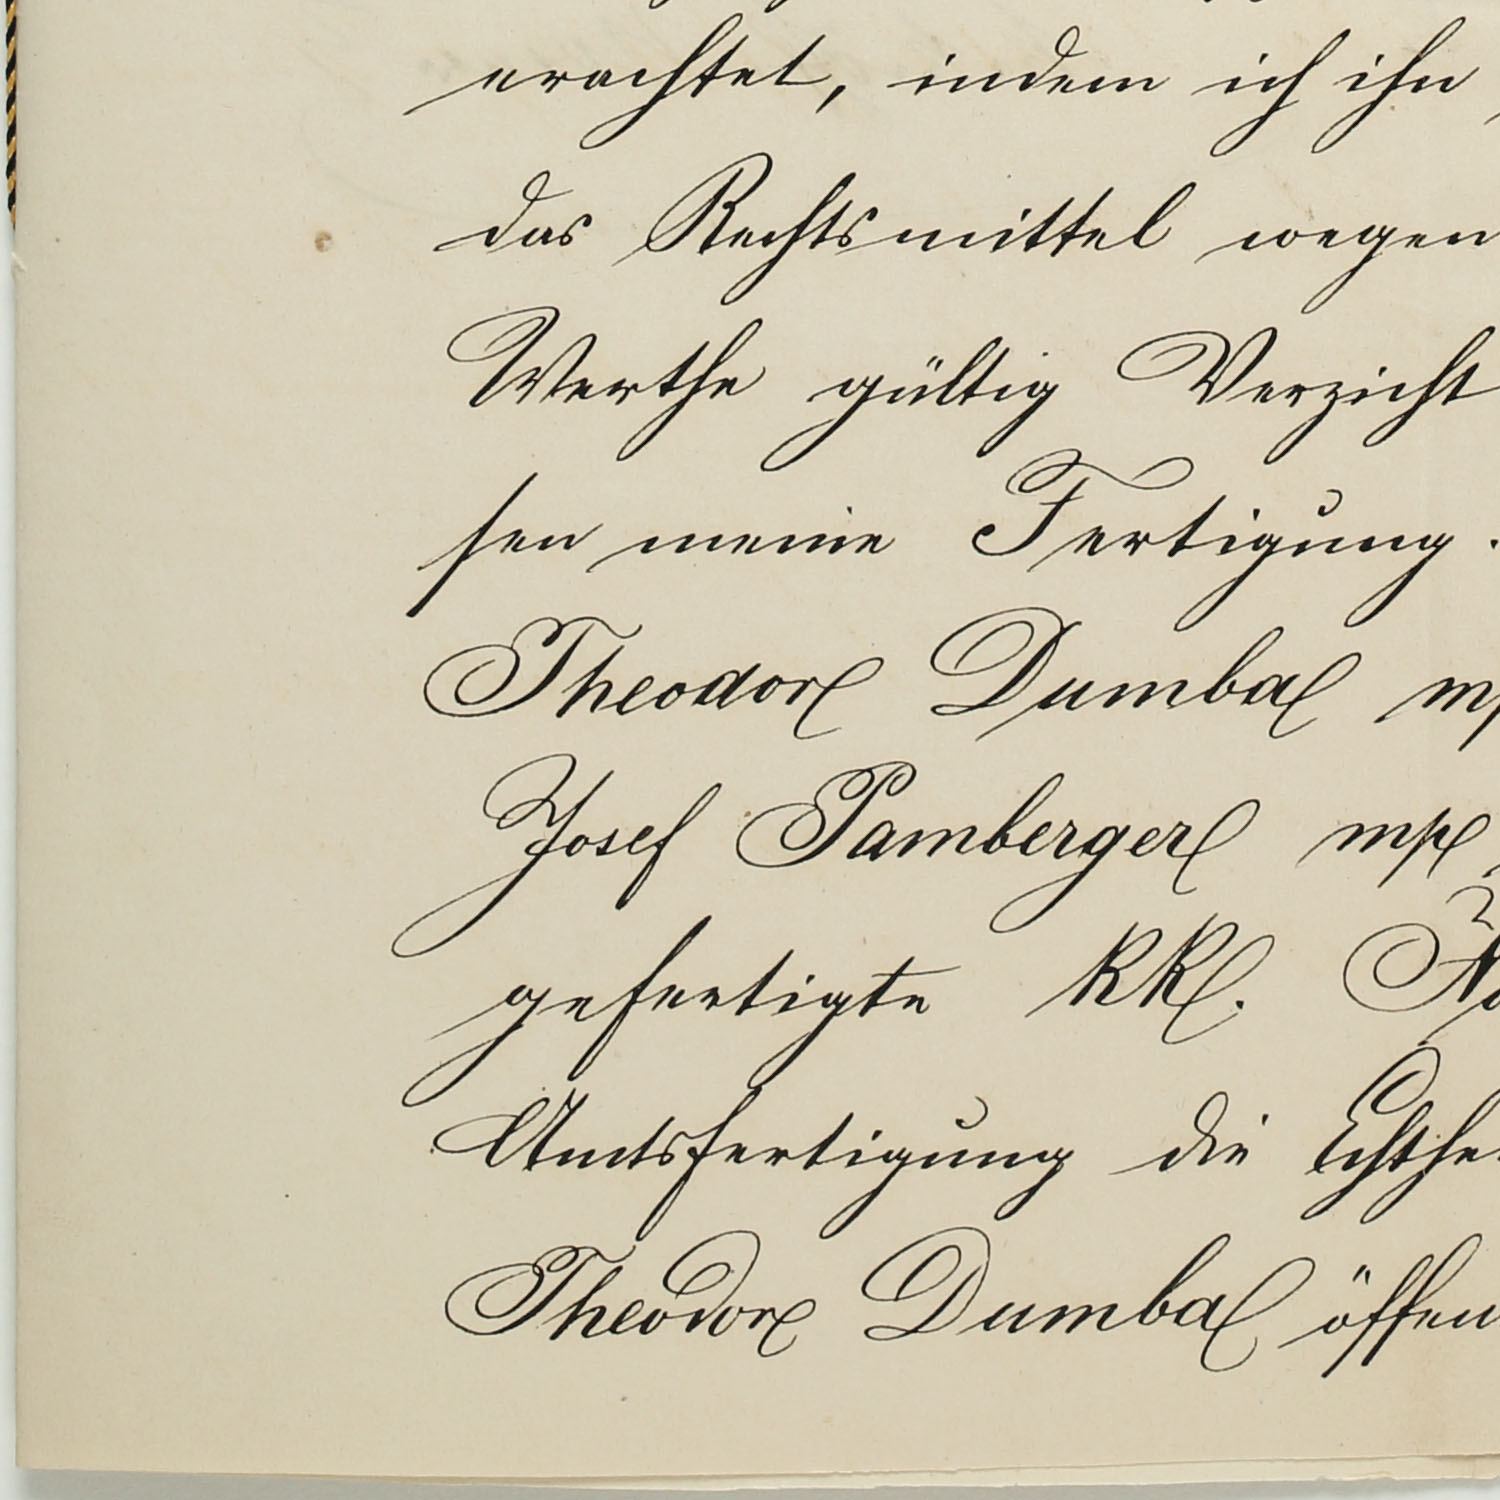 erachtet, indem ich ihn
das Rechtsmittel wegen
Werthe gültig Verzicht
sen meine Fertigung.
Theodor Dumba mp
Josef Pamberger mp
gefertigte k.k.
Amtsfertigung die Echthei
Theodor Dumba öffen